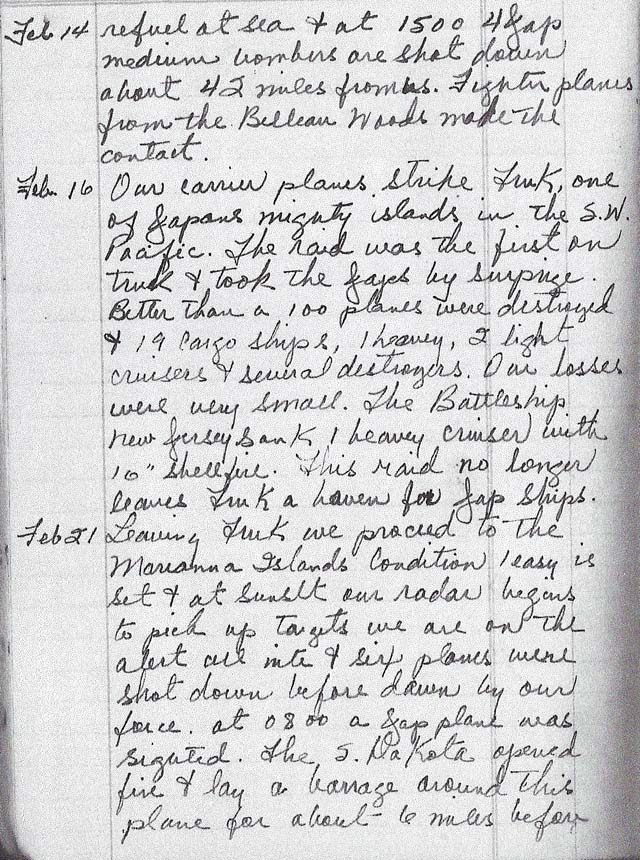 Feb 14 refuel at sea & at 1500 4 Jap
medium bombers are shot down
about 42 miles from us. Fighter planes
from the Belleau Woods made the
contact.
Feb. 16 Our carrier planes strike Truk, one
of Japans mighty islands in the S.W.
Pacific. The raid was the first on
truk & took the Japs by surprize.
Better than a 100 planes were destroyed
& 19 cargo ships, 1 heavey, 2 light
cruisers & several destroyers. Our losses
were very small. The Battleship
new Jersey sank 1 heavey cruiser with
16" shellfire. This raid no longer
leaves Truk a haven for Jap ships.
Feb 21 Leaving Truk we proceed to the
Marianna Islands Condition 1 easy is
set & at sunset our radar begins
to pick up targets we are on the
alert all nite & six planes were
shot down before dawn by our
force. at 0800 a Jap plane was
sighted. The S. Dakota opened
fire & lay a barrage around this
plane for about 6 miles before